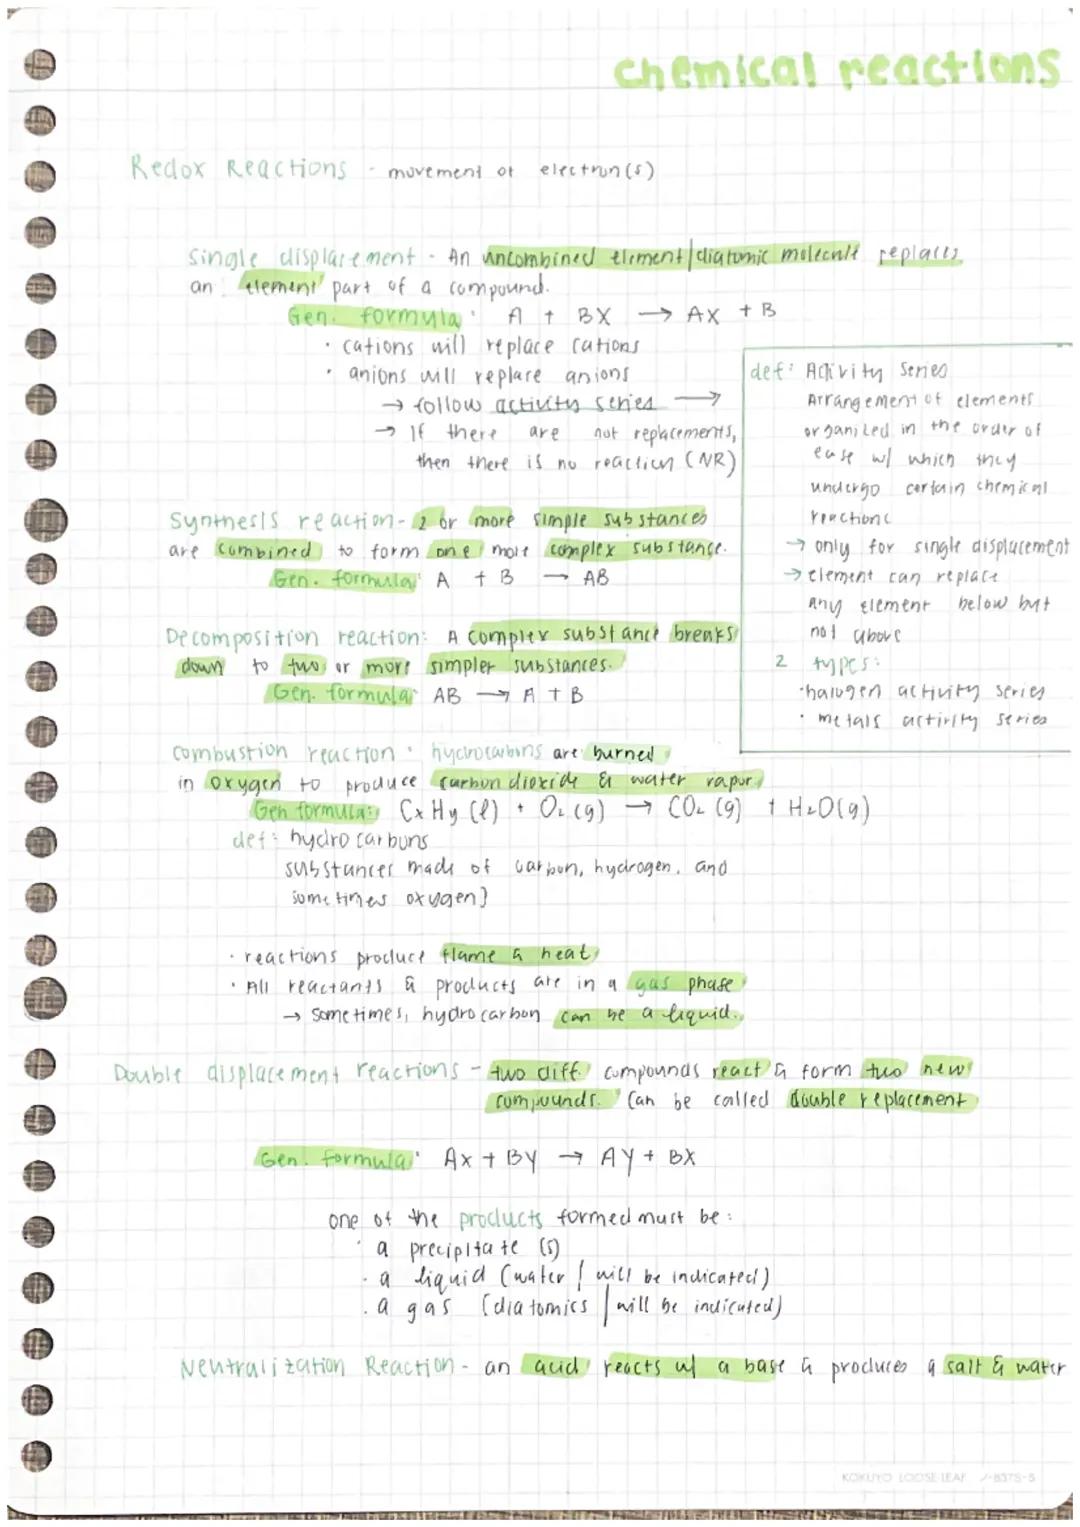 chemical reactions
Redox Reactions - movement of electron(s)
Single displacement - An uncombined element/diatomic molecule replaces
an element part of a compound.
Gen. formula: A + BX → AX + B
· cations will replace cations
· anions will replace anions
→ follow activity series →
→ If there are not replacements,
then there is no reaction (NR)
def: Activity Series
Arrangement of elements
organized in the order of
ease w/ which they
undergo certain chemical
reactions
→ only for single displacement
→ element can replace
any element below but
not above
2 types:
· halogen activity series
· metals activity series
Synthesis reaction - 2 or more simple substances
are combined to form one more complex substance.
Gen. formula: A + B → AB
Decomposition reaction: A complex substance breaks
down to two or more simpler substances.
Gen. formula: AB → A + B
Combustion reaction: hydrocarbons are burned
in oxygen to produce carbon dioxide & water vapor
Gen formula: CxHy (l) + O₂ (g) → CO₂ (g) + H₂O(g)
def: hydrocarbons
substances made of carbon, hydrogen, and
sometimes oxygen]
· reactions produce flame & heat
· All reactants & products are in a gas phase
→ Sometimes, hydrocarbon can be a liquid.
Double displacement reactions - two diff. compounds react & form two new
compounds. Can be called double replacement
Gen. formula: AX + BY → AY + BX
one of the products formed must be:
· a precipitate (s)
· a liquid (water / will be indicated)
· a gas (diatomics / will be indicated)
Neutralization Reaction - an acid reacts w/ a base & produces a salt & water
KOKUYO LOOSE-LEAF ノ-837S-5